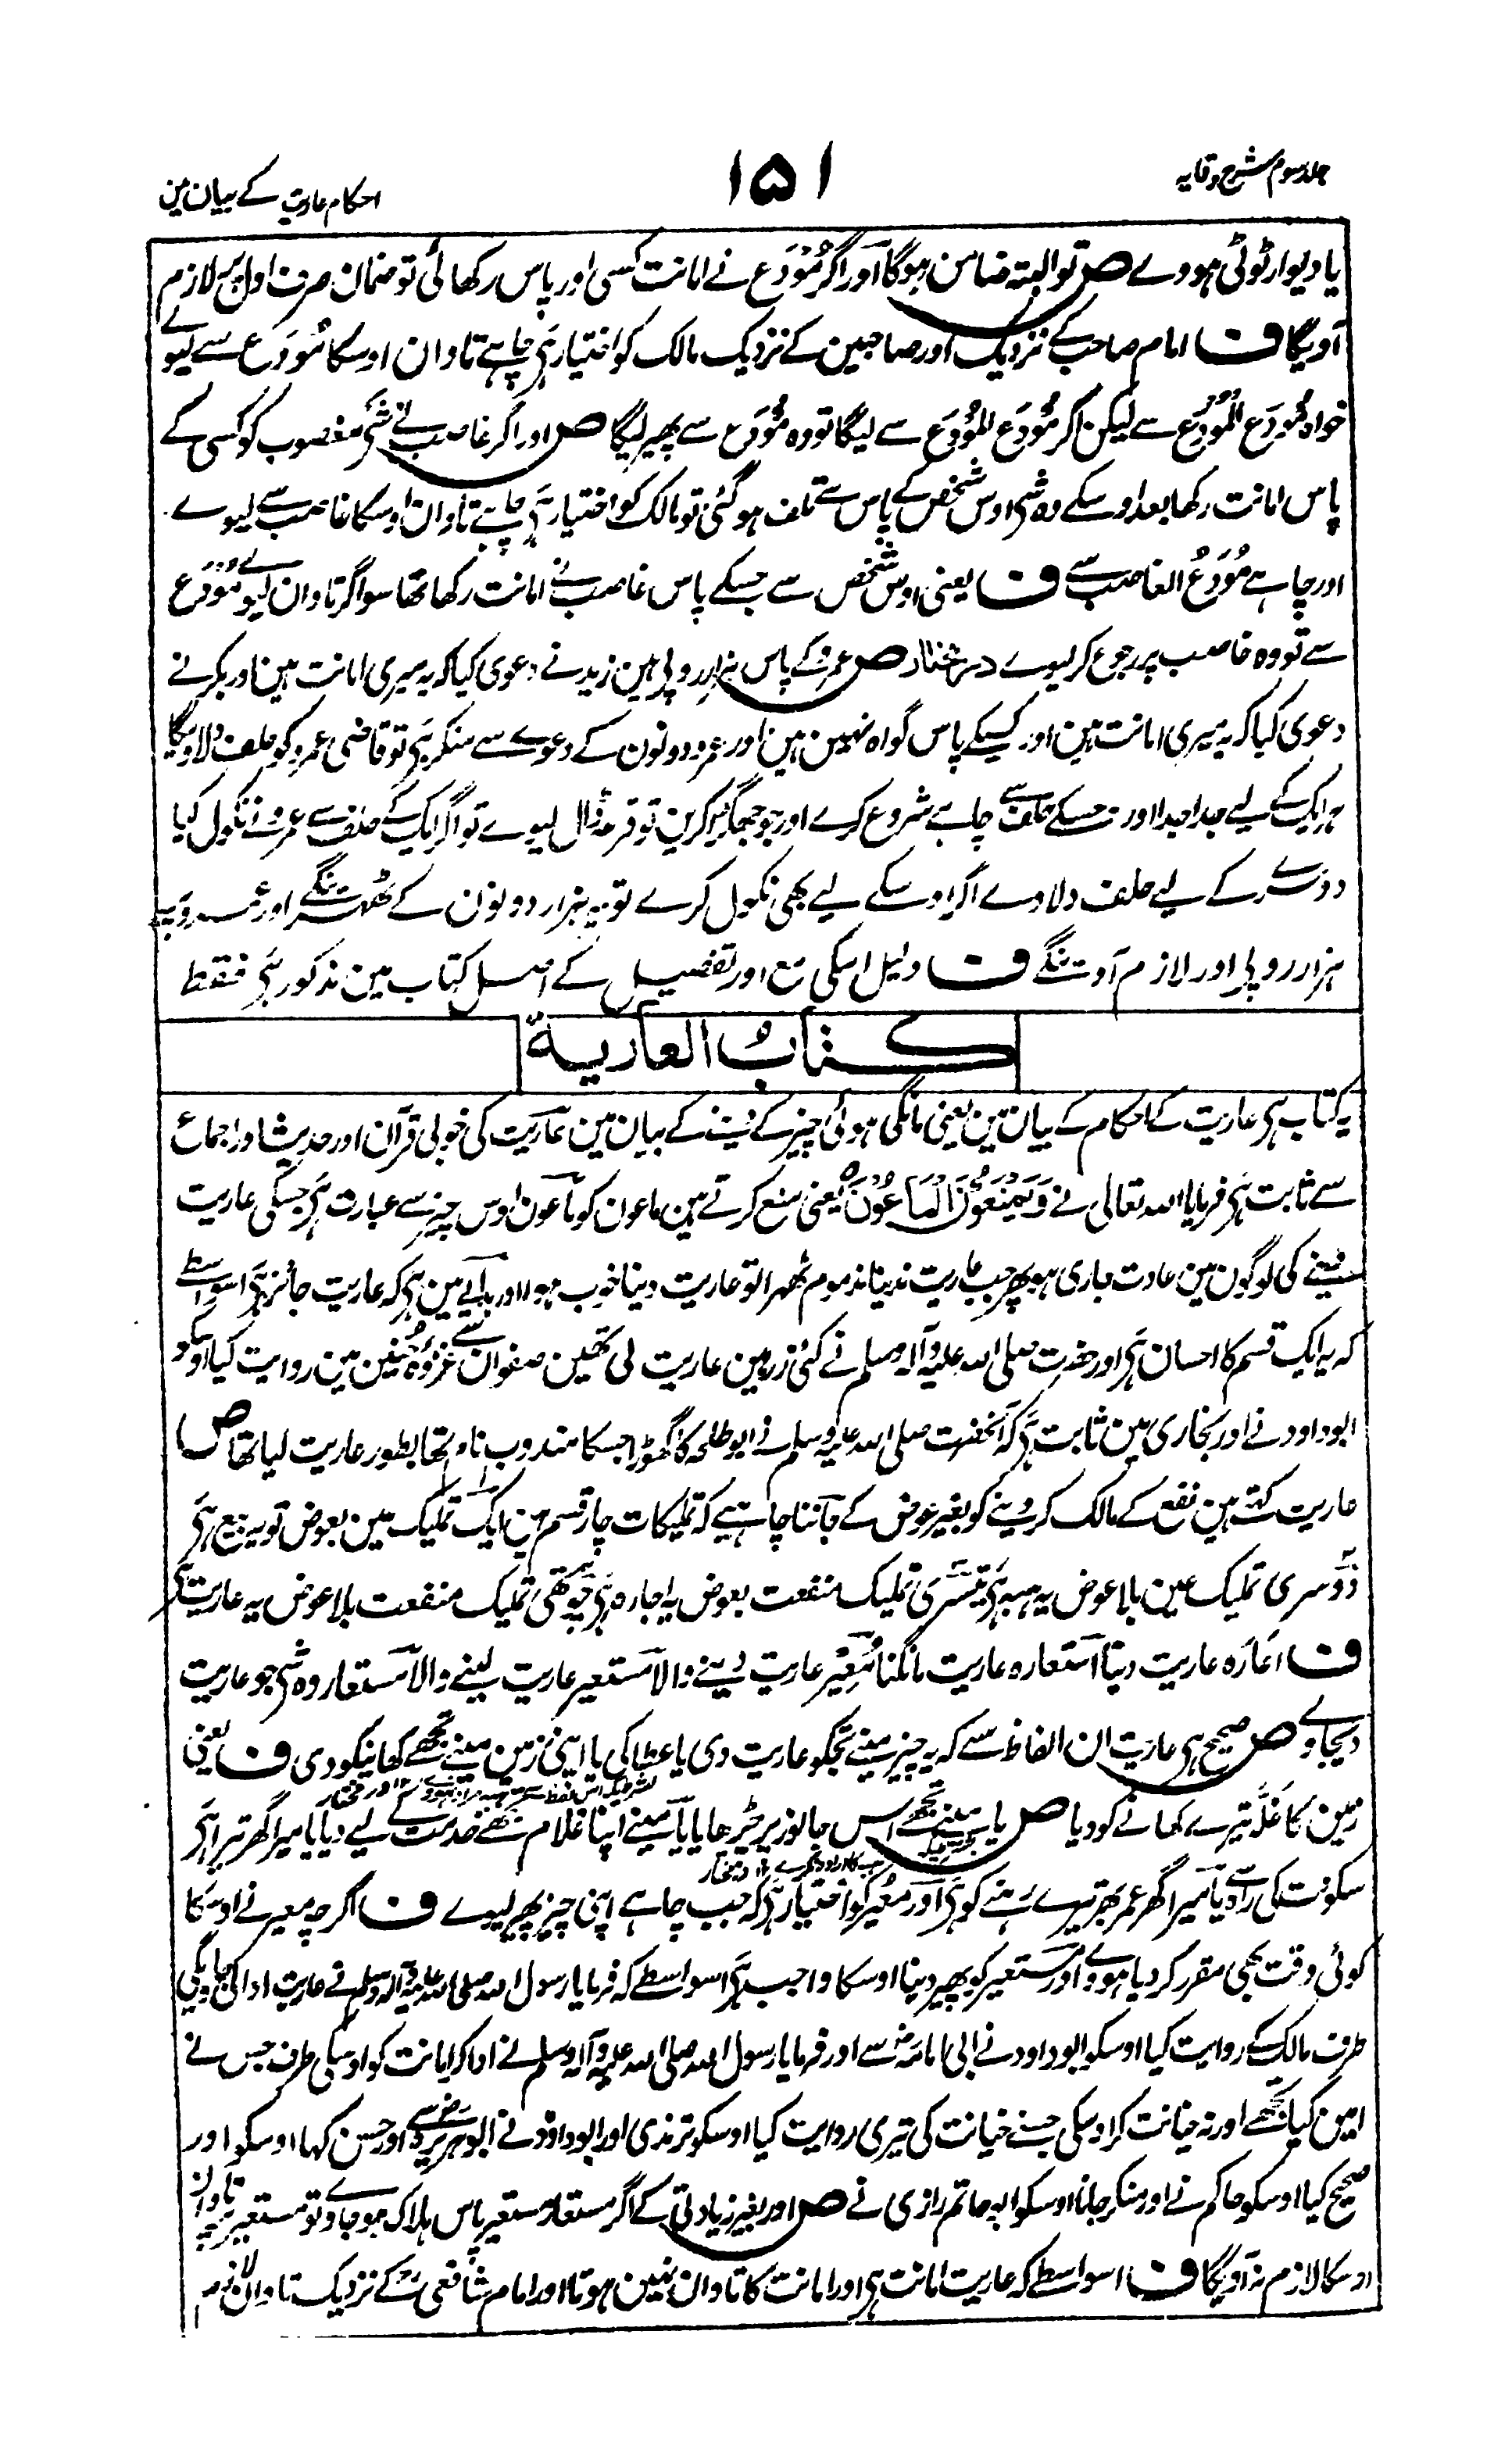 جلد سوم شرح وقایہ
۱۵۱
احکام عاریت کے بیان مین
یا دیوار ٹوٹی ہووے ص تو البتہ ضامن ہوگا اور اگر مُوْدَع نے امانت کسی اور پاس رکھائی تو ضمان صرف اول پر لازم
آویگا ف امام صاحب کے نزدیک اور صاحبین کے نزدیک مالک کو اختیار ہی چاہے تاوان اوسکا مُوْدَع سے لیوے
خواہ مُوْدَع المُوْدَع سے لیکن اگر مُوْدَع المُوْدَع سے لیگا تو وہ مُوْدَع سے پھیر لیگا ص اور اگر غاصب نے شی مغصوب کو کسی کے
پاس امانت رکھا بعد اوسکے وہ شی اوس شخص کے پاس سے تلف ہو گئی تو مالک کو اختیار ہی چاہے تاوان اوسکا غاصب سے لیوے
اور چاہے مُوْدَعُ الغاصب سے ف یعنی اوس شخص سے جسکے پاس غاصب نے امانت رکھا تھا سو اگر تاوان لیوے مُوْدَع
سے تو وہ غاصب پر رجوع کر لیوے درمختار ص عمرو کے پاس ہزار روپی ہین زید نے دعوی کیا کہ یہ میری امانت ہین اور بکر نے
دعوی کیا کہ یہ میری امانت ہین اور کسیکے پاس گواہ نہین ہین اور عمرو دونون کے دعوے سے منکر ہی تو قاضی عمرو کو حلف دلاویگا
ہر ایک کے لیے جدا جدا اور جسکے حلف سے چاہے شروع کرے اور جو جھگڑا کرین تو قرعہ ڈال لیوے تو اگر ایک کے حلف سے عمرو نے نکول کیا
دوسرے کے لیے حلف دلاوے اگر اوسکے لیے بھی نکول کرے تو یہ ہزار دونون کے ٹھہرینگے اور عمرو پر
ہزار روپی اور لازم آوینگے ف دلیل اسکی مع اور تفصیل کے اصل کتاب مین مذکور ہی فقط
کتابُ العاریة
یہ کتاب ہی عاریت کے احکام کے بیان مین یعنی مانگی ہوئی چیز کے دینے کے بیان مین عاریت کی خوبی قرآن اور حدیث اور اجماع
سے ثابت ہی فرمایا اللہ تعالی نے وَيَمْنَعُوْنَ الْمَاعُوْنَ یعنی منع کرتے ہین ماعون کو ماعون اوس چیز سے عبارت ہی جسکی عاریت
دینے کی لوگون مین عادت جاری ہو پھر جب عاریت ندینا مذموم ٹھہرا تو عاریت دینا خوب ہوا اور ہدایے مین ہی کہ عاریت جائز ہی اسواسطے
کہ یہ ایک قسم کا احسان ہی اور حضرت صلی اللہ علیہ وآلہ وسلم نے کئی زرہین عاریت لی تھین صفوان سے غزوۂ حنین مین روایت کیا اوسکو
ابو داود نے اور بخاری مین ثابت ہی کہ آنحضرت صلی اللہ علیہ وسلم نے ابو طلحہ کا گھوڑا جسکا مندوب نام تھا بطور عاریت لیا تھا ص
عاریت کہتے ہین نفع کے مالک کر دینے کو بغیر عوض کے جاننا چاہیے کہ تملیکات چار قسم ہین ایک تملیک عین بعوض تو یہ بیع ہی
دوسری تملیک عین بلا عوض یہ ہبہ ہی تیسری تملیک منفعت بعوض یہ اجارہ ہی چوتھی تملیک منفعت بلا عوض یہ عاریت ہی
ف اعارہ عاریت دینا استعارہ عاریت مانگنا مُعِیْر عاریت دینے والا مستعیر عاریت لینے والا مستعار وہ شی جو عاریت
دیجاوے ص صحیح ہی عاریت ان الفاظ سے کہ یہ چیز مینے تجکو عاریت دی یا عطا کی یا اپنی زمین مینے تجھے کھانیکو دی ف یعنی
زمین کا غلہ تیرے کھانے کو دیا ص یا مینے تجھے اس جانور پر چڑھایا یا مینے اپنا غلام تجھے خدمت کے لیے دیا یا میرا گھر تیرا ہی
سکونت کی راہ سے یا میرا گھر عمر بھر تیرے رہنے کو ہی اور معیر کو اختیار ہی کہ جب چاہے اپنی چیز پھیر لیوے ف اگرچہ معیر نے اوسکا
کوئی وقت بھی مقرر کر دیا ہووے اور مستعیر کو پھیر دینا اوسکا واجب ہی اسواسطے کہ فرمایا رسول اللہ صلی اللہ علیہ وآلہ وسلم نے عاریت ادا کی جاویگی
طرف مالک کے روایت کیا اوسکو ابو داود نے ابی امامہ سے اور فرمایا رسول اللہ صلی اللہ علیہ وآلہ وسلم نے ادا کر امانت کو اوسکی طرف جس نے
امین کیا تجھے اور نہ خیانت کر اوسکی جسنے خیانت کی تیری روایت کیا اوسکو ترمذی اور ابو داؤد نے ابو ہریرہ سے اور حسن کہا اوسکو اور
صحیح کیا اوسکو حاکم نے اور منکر جانا اوسکو ابو حاتم رازی نے ص اور بغیر زیادتی کے اگر مستعار مستعیر پاس ہلاک ہو جاوے تو مستعیر پر تاوان
اوسکا لازم نہ آویگا ف اسواسطے کہ عاریت امانت ہی اور امانت کا تاوان نہین ہوتا اور امام شافعی کے نزدیک تاوان لازم